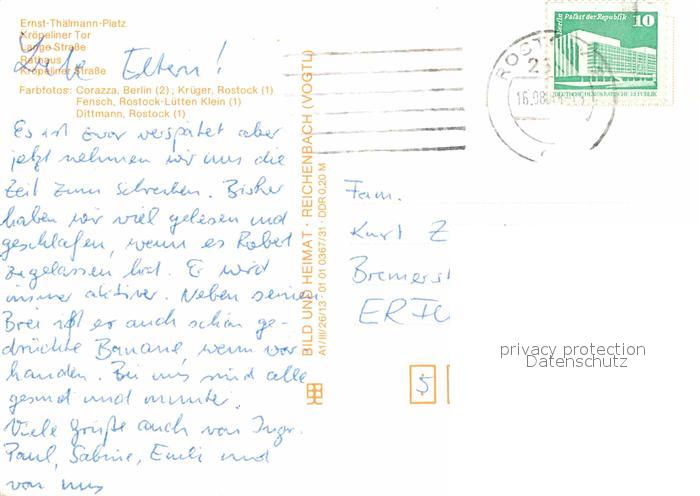 Ernst-Thälmann-Platz
Kröpeliner Tor
Lange Straße
Rathaus
Kröpeliner Straße
Farbfotos: Corazza, Berlin (2); Krüger, Rostock (1)
Fensch, Rostock-Lütten Klein (1)
Dittmann, Rostock (1)
Liebe Eltern!
Es ist zwar verspätet aber
jetzt nehmen wir uns die
Zeit zum Schreiben. Bisher
haben wir viel gelesen und
geschlafen, wenn es Robert
zugelassen hat. Er wird
immer aktiver. Neben seinem
Brei ißt er auch schon ge-
drückte Banane, wenn vor
handen. Bei uns sind alle
gesund und munter.
Viele Grüße auch von
Paul, Sabine, Emili und
von uns
BILD UND HEIMAT · REICHENBACH (VOGTL)
A1/III/26/13 · 01 01 0367/31 · DDR 0,20 M
Berlin Palast der Republik 10
DEUTSCHE DEMOKRATISCHE REPUBLIK
ROST
16.08
Fam.
Kurt Z
Bremerst
ERFU
5
privacy protection
Datenschutz